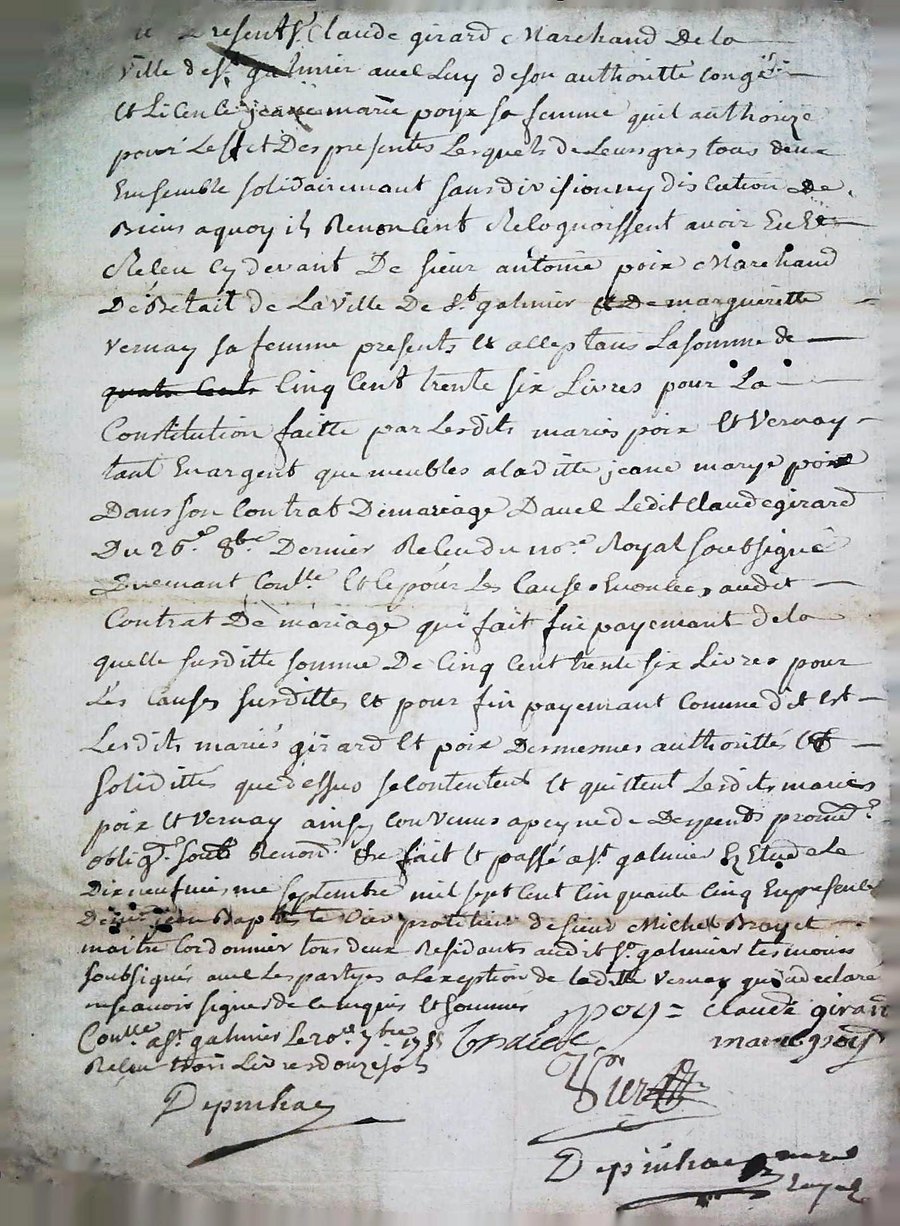 presents Sr Claude girard Marchand De la
ville de st galmier avec Luy de son authoritté congé
et Licence jeane marie poyx sa femme quil authorize
pour Leffet Des presentes Lesquels de Leurs gres tous deux
Ensemble solidairemant sans division ny discution de
Biens aquoy ils Renoncent Recognoissent avoir Eu Et
Receu cy devant De sieur antoine poix Marchand
De La ville De St galmier et De margueritte
vernay sa femme presents et acceptans La somme de
quatre Cents Cinq Cent trente six Livres pour La
Constitution faitte par Lesdits mariés poix et Vernay
tant En argent que meubles a laditte jeane marye poix
Dans son Contrat De mariage Davec Ledit Claude girard
Du 26e 8bre Dernier Receu du nore Royal soubsigné
Duemant Conllé Et ce pour Les Causes Enoncées audit
Contrat De mariage qui fait fin payemant de la
quelle susditte somme De Cinq Cent trente six Livres pour
Les Causes susdittes et pour fin payemant Comme dit est
Lesdits mariés girard et poix Desmesmes authorittés et
soliditté que dessus se contentent et quittent Lesdits mariés
poix et Vernay ainsy Convenus a peyne de Despends promt
obligt soub Renont fait et passé a st galmier Etude Le
Dix neufuiesme septembre mil sept Cent Cinquante Cinq En presence
De jean Baptiste Vier de sieur Michel Brayet
maitre Cordonnier tous deux Residants audit St galmier tesmoins
soubsignés avec Les partyes a Lexeption de laditte Vernay qui a declaré
ne scavoir signer de ce enquis et sommés poy = claude girard
Conllé a St galmier Le 20e 7bre 1755 marie poy
Receu trois Livres douze sols
Vier
Depinhac
Depinhac Royal